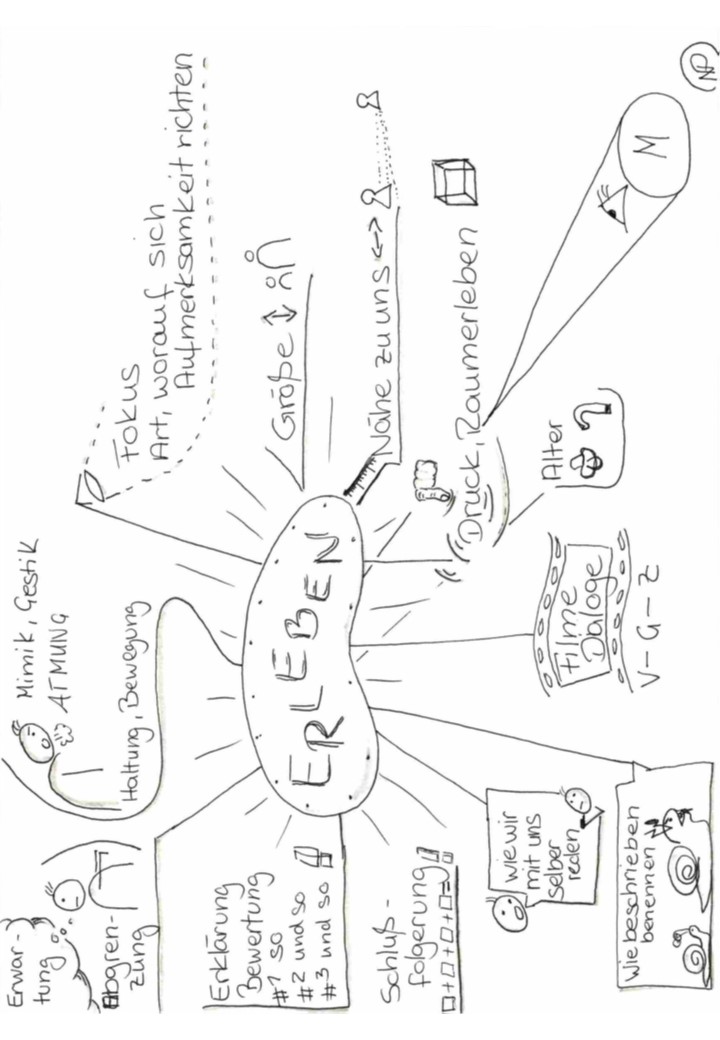 ERLEBEN
Erwar-
tung
Abgren-
zung
Mimik, Gestik
ATMUNG
Haltung, Bewegung
Fokus
Art, worauf sich
Aufmerksamkeit richten
Größe
Nähe zu uns
Druck, Raumerleben
M
Alter
Filme
Dialoge
V-G-Z
wie beschrieben
benennen
wie wir
mit uns
selber
reden
Schluß-
folgerung
□+□+□+□=
Erklärung
Bewertung
#1 so
#2 und so
#3 und so
NP